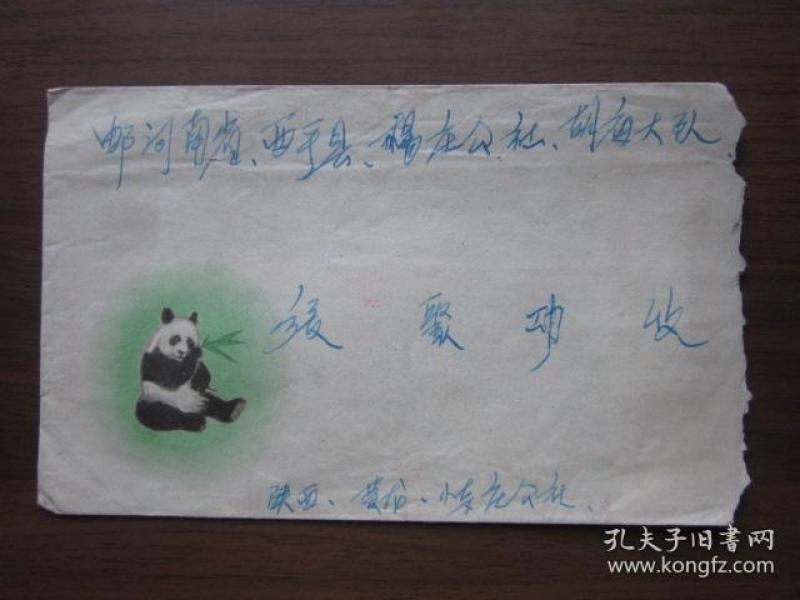 邮河南省、西平县、杨庄公社、胡庙大队
张聚功收
陕西、黄龙、小寺庄公社、
孔夫子旧书网
www.kongfz.com